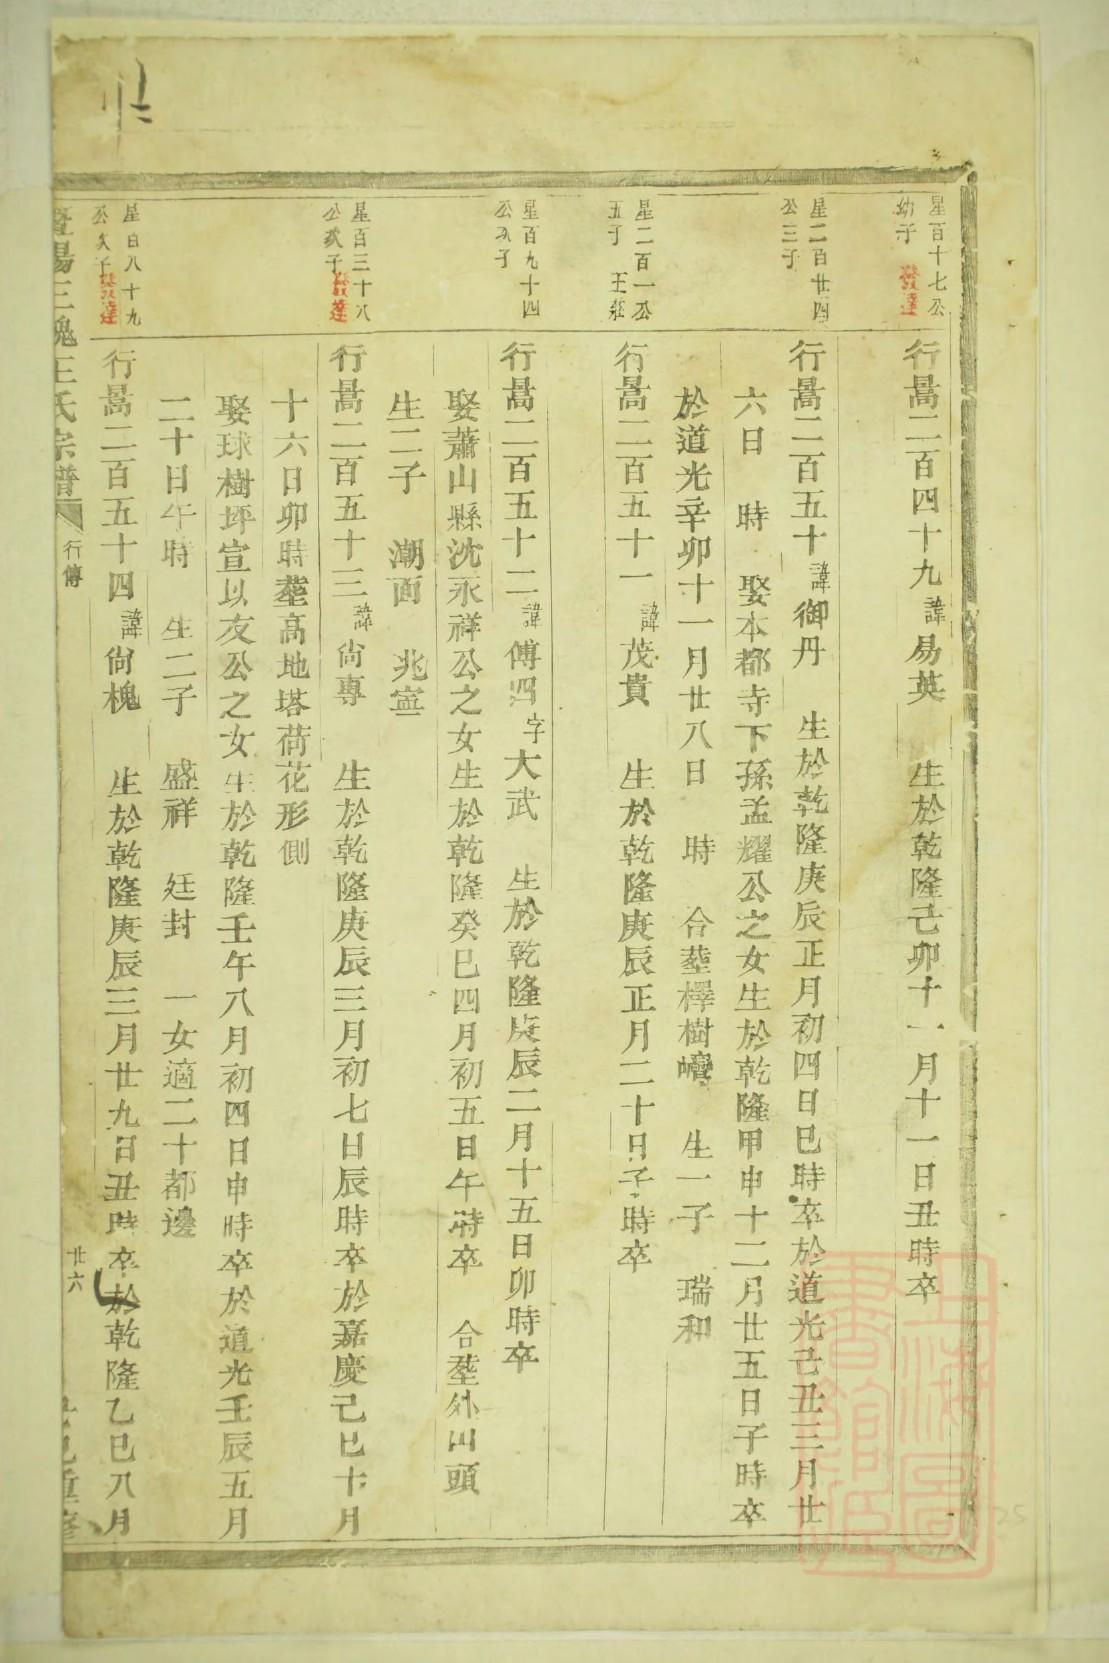 星百十七公
幼子 發達
行暠二百四十九諱易英 生於乾隆己卯十一月十一日丑時卒
星二百廿四
公三子
行暠二百五十諱御丹 生於乾隆庚辰正月初四日巳時卒於道光己丑三月廿
六日 時 娶本都寺下孫孟耀公之女生於乾隆甲申十二月廿五日子時卒
於道光辛卯十一月廿八日 時 合塟檡樹 生一子 瑞和
星二百一公
五子 王莊
行暠二百五十一諱茂貴 生於乾隆庚辰正月二十日子時卒
星百九十四
公次子
行暠二百五十二諱傅泗字大武 生於乾隆庚辰二月十五日卯時卒
娶蕭山縣沈永祥公之女生於乾隆癸巳四月初五日午時卒 合塟外山頭
生二子 潮面 兆寧
星百三十八
公次子發達
行暠二百五十三諱尙專 生於乾隆庚辰三月初七日辰時卒於嘉慶己巳十月
十六日卯時塟高地塔荷花形側
娶球樹坪宣以友公之女生於乾隆壬午八月初四日申時卒於道光壬辰五月
二十日午時 生二子 盛祥 廷封 一女適二十都邊
星百八十九
公次子發達
行暠二百五十四諱尙槐 生於乾隆庚辰三月廿九日丑時卒於乾隆乙巳八月
暨陽三槐王氏宗譜 行傳 廿六 重修
上海圖書館藏
25